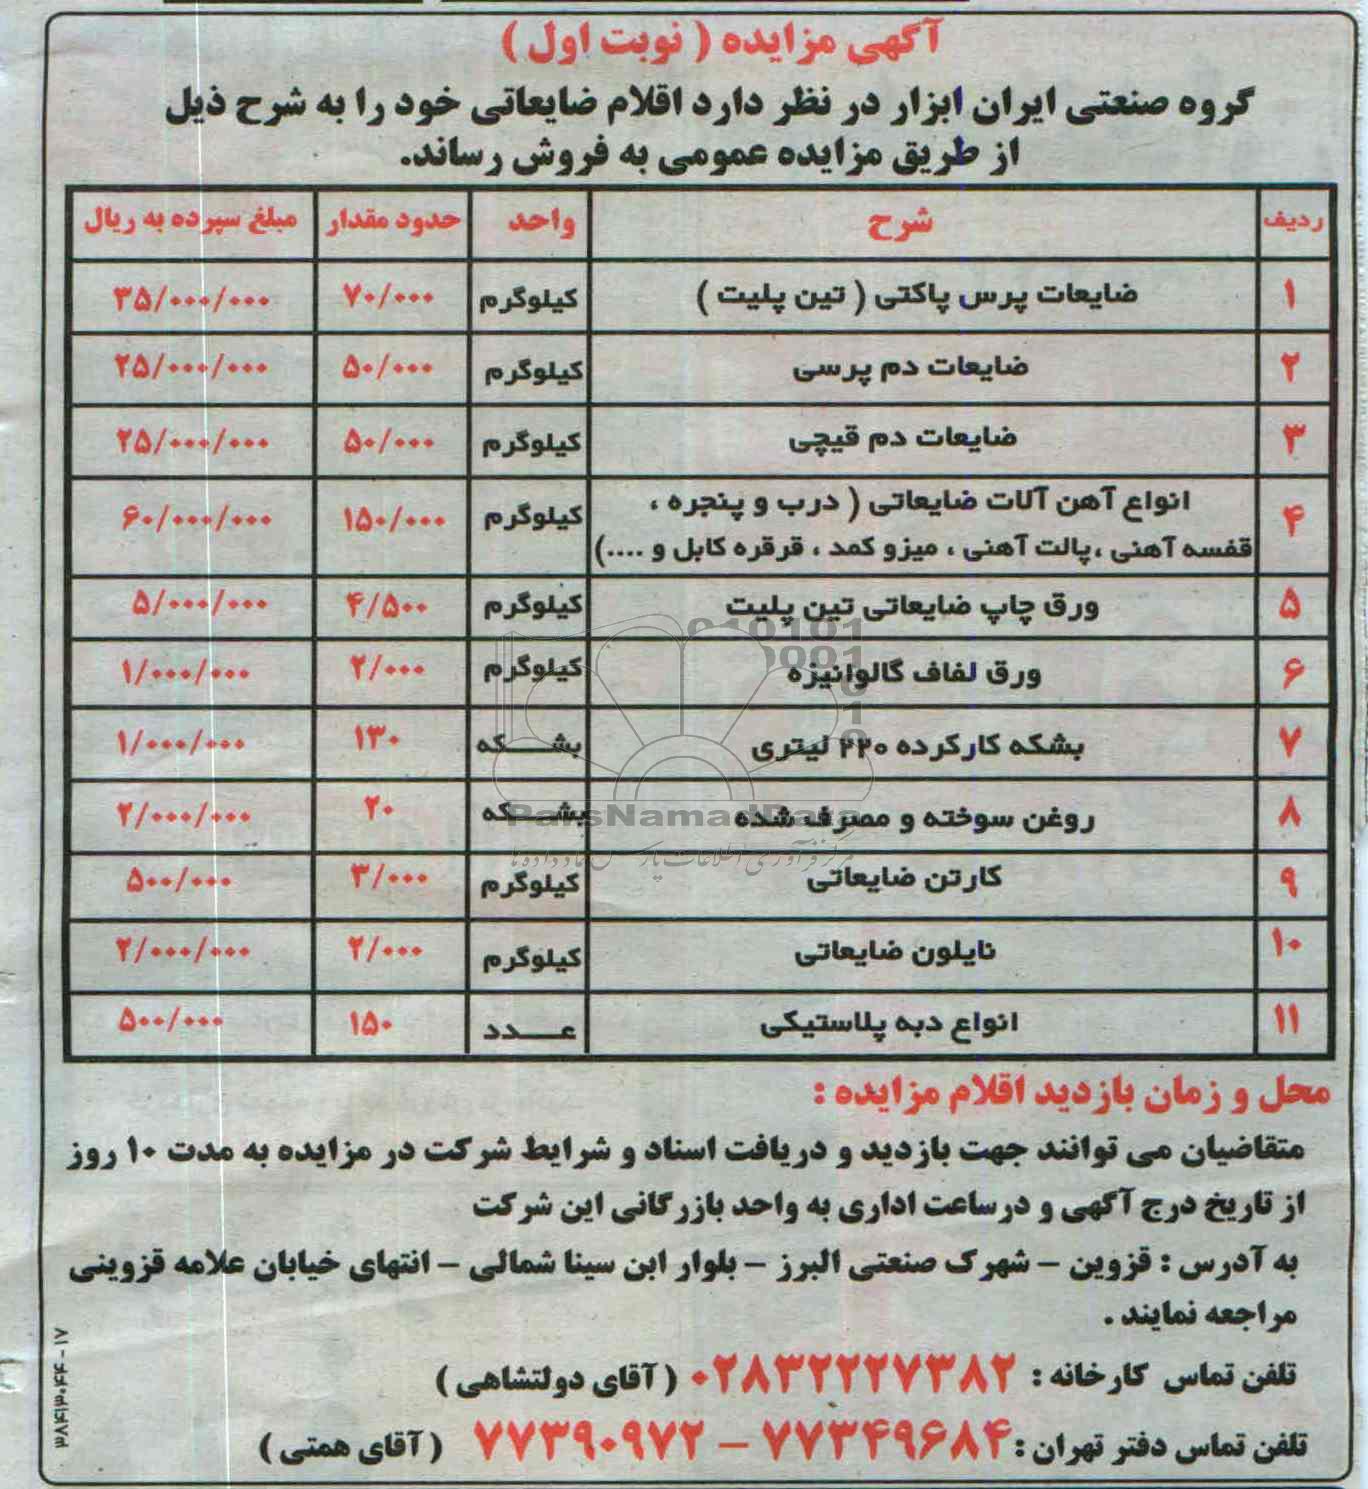 آگهی مزایده ( نوبت اول )
گروه صنعتی ایران ابزار در نظر دارد اقلام ضایعاتی خود را به شرح ذیل
از طریق مزایده عمومی به فروش رساند.
ردیف شرح واحد حدود مقدار مبلغ سپرده به ریال
۱ ضایعات پرس پاکتی ( تین پلیت ) کیلوگرم ۷۰/۰۰۰ ۳۵/۰۰۰/۰۰۰
۲ ضایعات دم پرسی کیلوگرم ۵۰/۰۰۰ ۲۵/۰۰۰/۰۰۰
۳ ضایعات دم قیچی کیلوگرم ۵۰/۰۰۰ ۲۵/۰۰۰/۰۰۰
۴ انواع آهن آلات ضایعاتی ( درب و پنجره ،
قفسه آهنی ،پالت آهنی ، میزو کمد ، قرقره کابل و ....) کیلوگرم ۱۵۰/۰۰۰ ۶۰/۰۰۰/۰۰۰
۵ ورق چاپ ضایعاتی تین پلیت کیلوگرم ۴/۵۰۰ ۵/۰۰۰/۰۰۰
۶ ورق لفاف گالوانیزه کیلوگرم ۲/۰۰۰ ۱/۰۰۰/۰۰۰
۷ بشکه کارکرده ۲۲۰ لیتری بشــکه ۱۳۰ ۱/۰۰۰/۰۰۰
۸ روغن سوخته و مصرف شده بشــکه ۲۰ ۲/۰۰۰/۰۰۰
۹ کارتن ضایعاتی کیلوگرم ۳/۰۰۰ ۵۰۰/۰۰۰
۱۰ نایلون ضایعاتی کیلوگرم ۲/۰۰۰ ۲/۰۰۰/۰۰۰
۱۱ انواع دبه پلاستیکی عــدد ۱۵۰ ۵۰۰/۰۰۰
ParsNamadData
مرکز فرآوری اطلاعات پارس نماد داده ها
محل و زمان بازدید اقلام مزایده :
متقاضیان می توانند جهت بازدید و دریافت اسناد و شرایط شرکت در مزایده به مدت ۱۰ روز
از تاریخ درج آگهی و درساعت اداری به واحد بازرگانی این شرکت
به آدرس : قزوین – شهرک صنعتی البرز – بلوار ابن سینا شمالی – انتهای خیابان علامه قزوینی
مراجعه نمایند .
تلفن تماس کارخانه : ۰۲۸۳۲۲۲۷۳۸۲ ( آقای دولتشاهی )
تلفن تماس دفتر تهران : ۷۷۳۴۹۶۸۴ – ۷۷۳۹۰۹۷۲ ( آقای همتی )